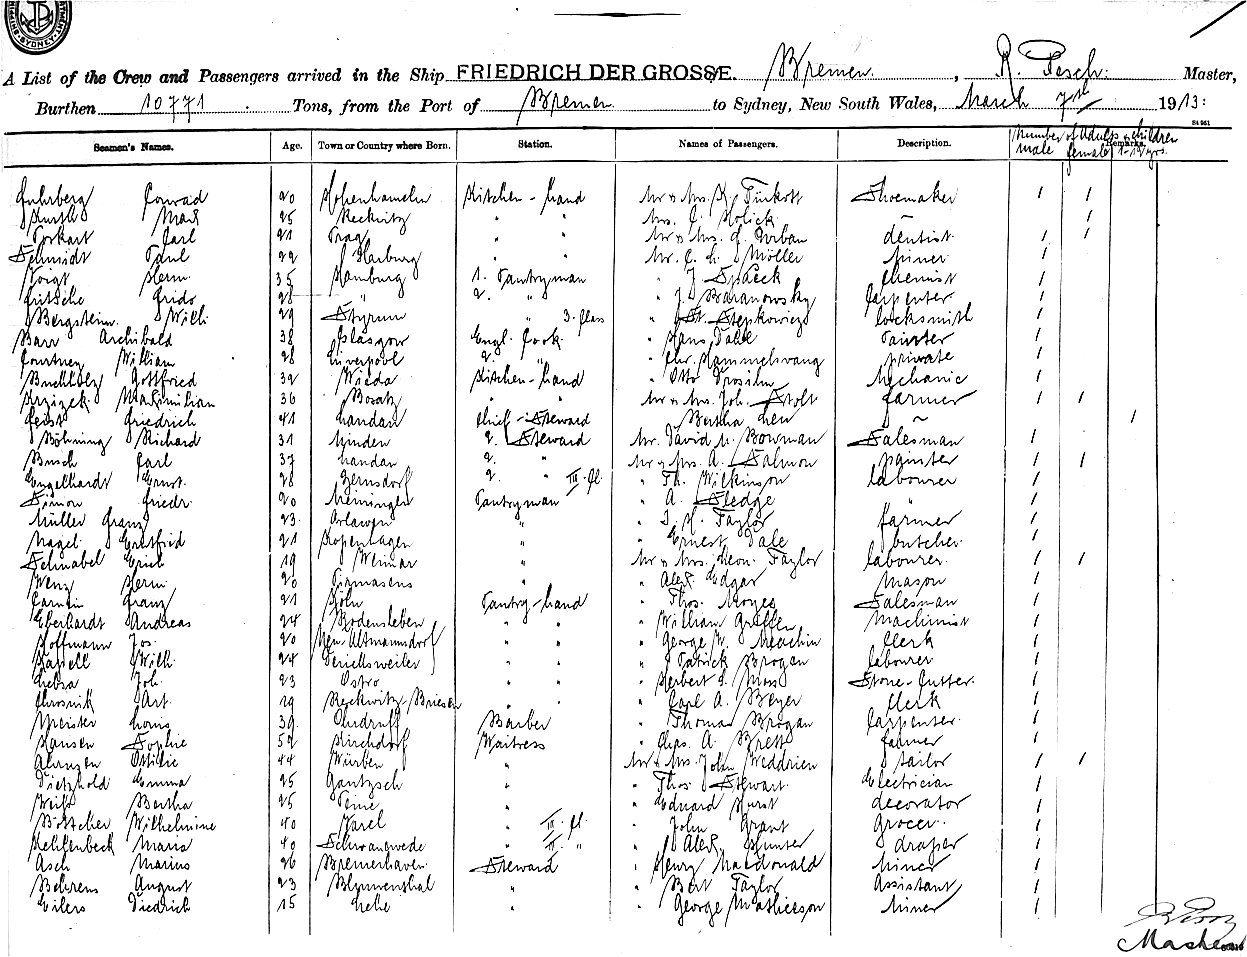 SYDNEY
A List of the Crew and Passengers arrived in the Ship FRIEDRICH DER GROSSE. Bremen. , R. Pesch. Master,
Burthen 10771 Tons, from the Port of Bremen to Sydney, New South Wales, March 7th 1913:
St 961
Seamen's Names. Age. Town or Country where Born. Station. Names of Passengers. Description. Number of Adults & children male female Remarks. 1-12 yrs.
Fuhrberg Conrad 20 Hohenhameln Kitchen-hand Mr & Mrs. Türkott Shoemaker 1 1
Max 25 Reckwitz " " Mrs. Holick ~ 1
Carl 21 Prag " " Mr & Mrs. Urban dentist 1 1
Schmidt Paul 22 Harburg Mr. Möller Miner 1
Voigt Herm. 35 Hamburg 1. Pantryman " J. Spaeck Chemist 1
Fritsche Frido 28 " 2. " " J. Baranowsky Carpenter 1
Bergstein. Willi 29 Styrum " 3. Class " St. Stepkowicz locksmith 1
Barr Archibald 38 Glasgow Engl. Cook. " Hans Dahl 1
Courtney William 28 Liverpool 2. " " Chr. Hammelsvang private 1
Buchholz Gottfried 32 Wieda Kitchen-hand " Otto Mechanic 1
Krzizek Maximilian 36 " " Mr & Mrs. Joh. Stolt farmer 1 1
Feist Friedrich 41 Landau Chief-Steward Bertha ~ 1
Böhning Richard 31 Minden 2. Steward Mr. David Bowman Salesman 1
Busch Carl 37 Landau 2. " Mr & Mrs. A. Salmon painter 1 1
Engelhardt Ernst. 28 Zernsdorf 2. " III. cl. " Th. Wilkinson labourer 1
Simon Friedr. 20 Meiningen Pantryman " A. Sledge " 1
Müller Franz 23. " " Taylor farmer 1
Nagel Gottfried 21 Kopenhagen " " Ernest Dale butcher. 1
Schnabel Erich 19 Weimar " Mr & Mrs. Leon. Taylor labourer. 1 1
Wenz Herm. 20 Pirmasens " " Alex Edgar Mason 1
Franz 21 Köln Pantry-hand " Thos. Noyes Salesman 1
Eberhardt Andreas 24 Bodensleben " " " William Griffen Machinist 1
Hoffmann Jos. 20 Neu Altmannsdorf " " " George W. Meachin Clerk 1
Kapell Wilh. 24 " " " Patrick Brogan labourer 1
Joh. 23 Ostro " " " Herbert Moss Stone-Cutter 1
Art. 19 " " " Carl A. Beyer Clerk 1
Meister Louis 39 Ohrdruff Barber " Thomas Brogan Carpenter 1
Hansen Sophie 52 Kirchdorf Waitress " Chas. A. Brett farmer 1
Ottilie 44 Würben " Mr & Mrs. John Weddrien tailor 1 1
Dietzhold Emma 25 Gautzsch " " Thos. Stewart. Electrician 1
Weiß Bertha 25 Peine " " Eduard Hurst decorator 1
Böttcher Wilhelmine 40 Varel " III. cl. " John Grant Grocer. 1
Kehlenbeck Maria 40 Schwanewede " II. " " Alex. Hunter draper 1
Asch Marius 26 Bremerhaven. Steward " Henry Macdonald Miner 1
Behrens August 23 Blumenthal " " Bert Taylor Assistant 1
Eilers Diedrich 15 Lehe " " George Mathieson Miner 1
Master